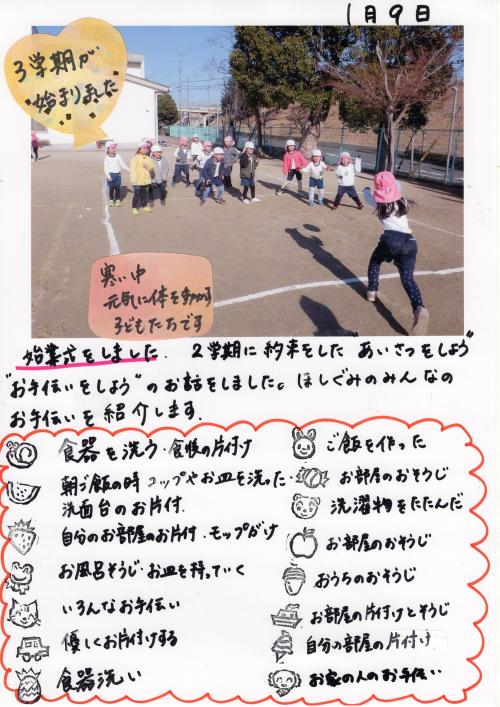 1月9日
3学期が
始まりました
寒い中
元気に体を動かす
子どもたちです
始業式をしました. 2学期に約束をした"あいさつをしよう"
"お手伝いをしよう"のお話をしました。ほしぐみのみんなの
お手伝いを紹介します.
食器を洗う・食後の片付け
朝ご飯の時コップやお皿を洗った・
洗面台のお片付.
自分のお部屋のお片付・モップがけ
お風呂そうじ・お皿を持っていく
いろんなお手伝い
優しくお片付けする
食器洗い
ご飯を作った
お部屋のおそうじ
洗濯物をたたんだ
お部屋のおそうじ
おうちのおそうじ
お部屋の片付けとそうじ
自分の部屋の片付け
お家の人のお手伝い